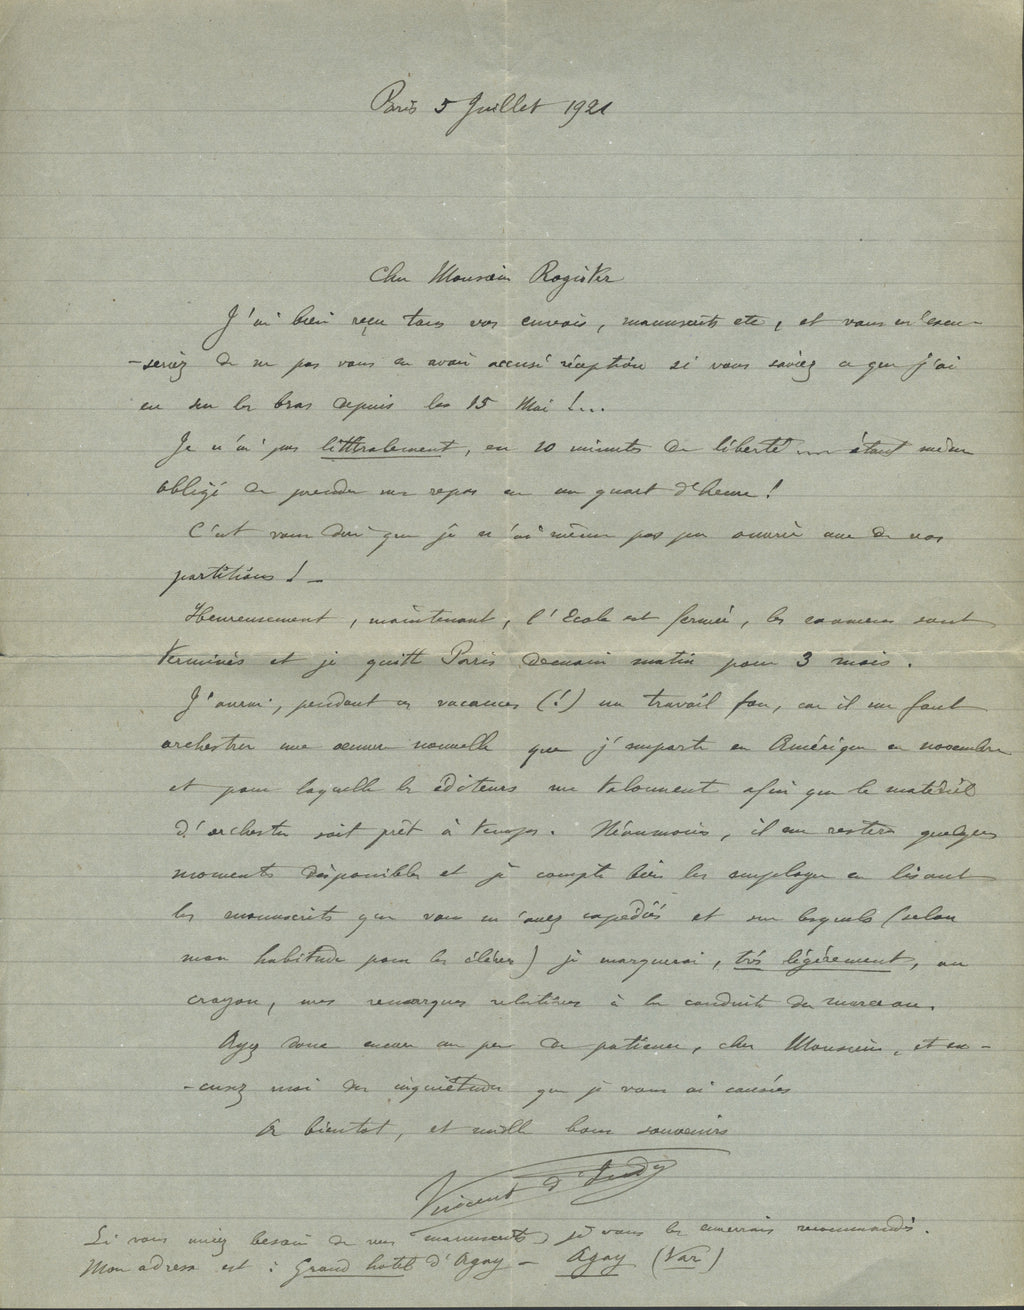 Paris 5 Juillet 1921
Cher Monsieur Rogister
J'ai bien reçu tous vos envois, manuscrits etc, et vous m'excu-
-seriez de ne pas vous en avoir accusé réception si vous saviez ce que j'ai
eu sur les bras depuis le 15 Mai !...
Je n'ai pas littéralement, eu 10 minutes de liberté .... étant même
obligé de prendre mes repas en un quart d'heure !
C'est vous dire que je n'ai même pas pu ouvrir une de vos
partitions ! -
Heureusement, maintenant, l'Ecole est fermée, les examens sont
terminés et je quitte Paris demain matin pour 3 mois.
J'aurai, pendant ces vacances (!) un travail fou, car il me faut
orchestrer une oeuvre nouvelle que j'emporte en Amérique en novembre
et pour laquelle les éditeurs me talonnent afin que le matériel
d'orchestre soit prêt à temps. Néanmoins, il me restera quelques
moments disponibles et je compte bien les employer en lisant
les manuscrits que vous m'avez expédiés et sur lesquels (selon
mon habitude pour les élèves) je marquerai, très légèrement, au
crayon, mes remarques relatives à la conduite du morceau.
Ayez donc encore un peu de patience, cher Monsieur, et ex-
-cusez moi des inquiétudes que je vous ai causées
A bientot, et mille bons souvenirs
Vincent d'Indy
Si vous aviez besoin de vos manuscrits, je vous les enverrais recommandés.
Mon adresse est : Grand hotel d'Agay - Agay (Var)